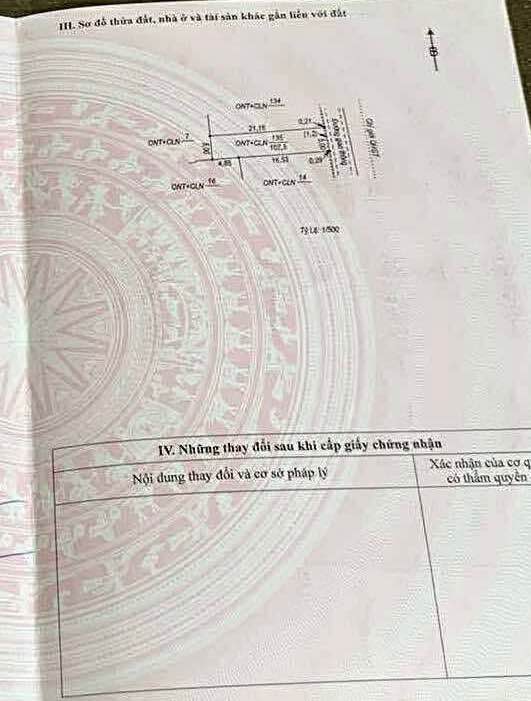 III. Sơ đồ thửa đất, nhà ở và tài sản khác gắn liền với đất
ONT+CLN 134
ONT+CLN 7
21,15
0,21
ONT+CLN 135
102,5
(1,2)
5,00
4,85
16,53
0,29
ONT+CLN 16
ONT+CLN 14
Tỷ Lệ: 1/500
IV. Những thay đổi sau khi cấp giấy chứng nhận
Nội dung thay đổi và cơ sở pháp lý
Xác nhận của cơ q
có thẩm quyền